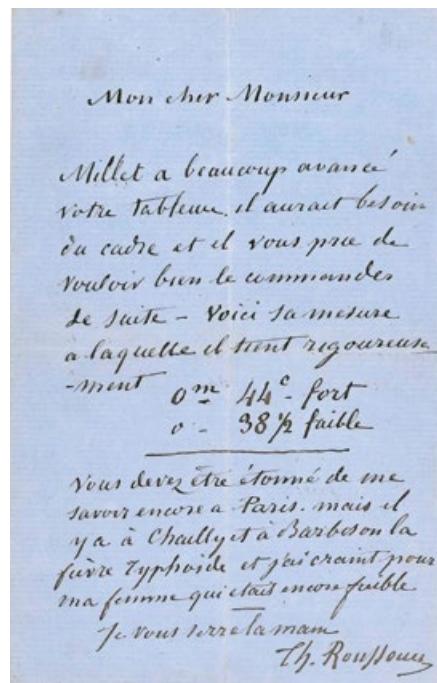 Mon cher Monsieur
Millet a beaucoup avancé
votre tableau. il aurait besoin
du cadre et il vous prie de
vouloir bien le commander
de suite - Voici sa mesure
a laquelle il tient rigoureuse
-ment
0m 44c - fort
0 - 38 1/2 faible
Vous devez être étonné de me
savoir encore a Paris. mais il
y a à Chailly et à Barbison la
fièvre Typhoïde et j'ai craint pour
ma femme qui etait encore faible
Je vous serre la main
Th. Rousseau